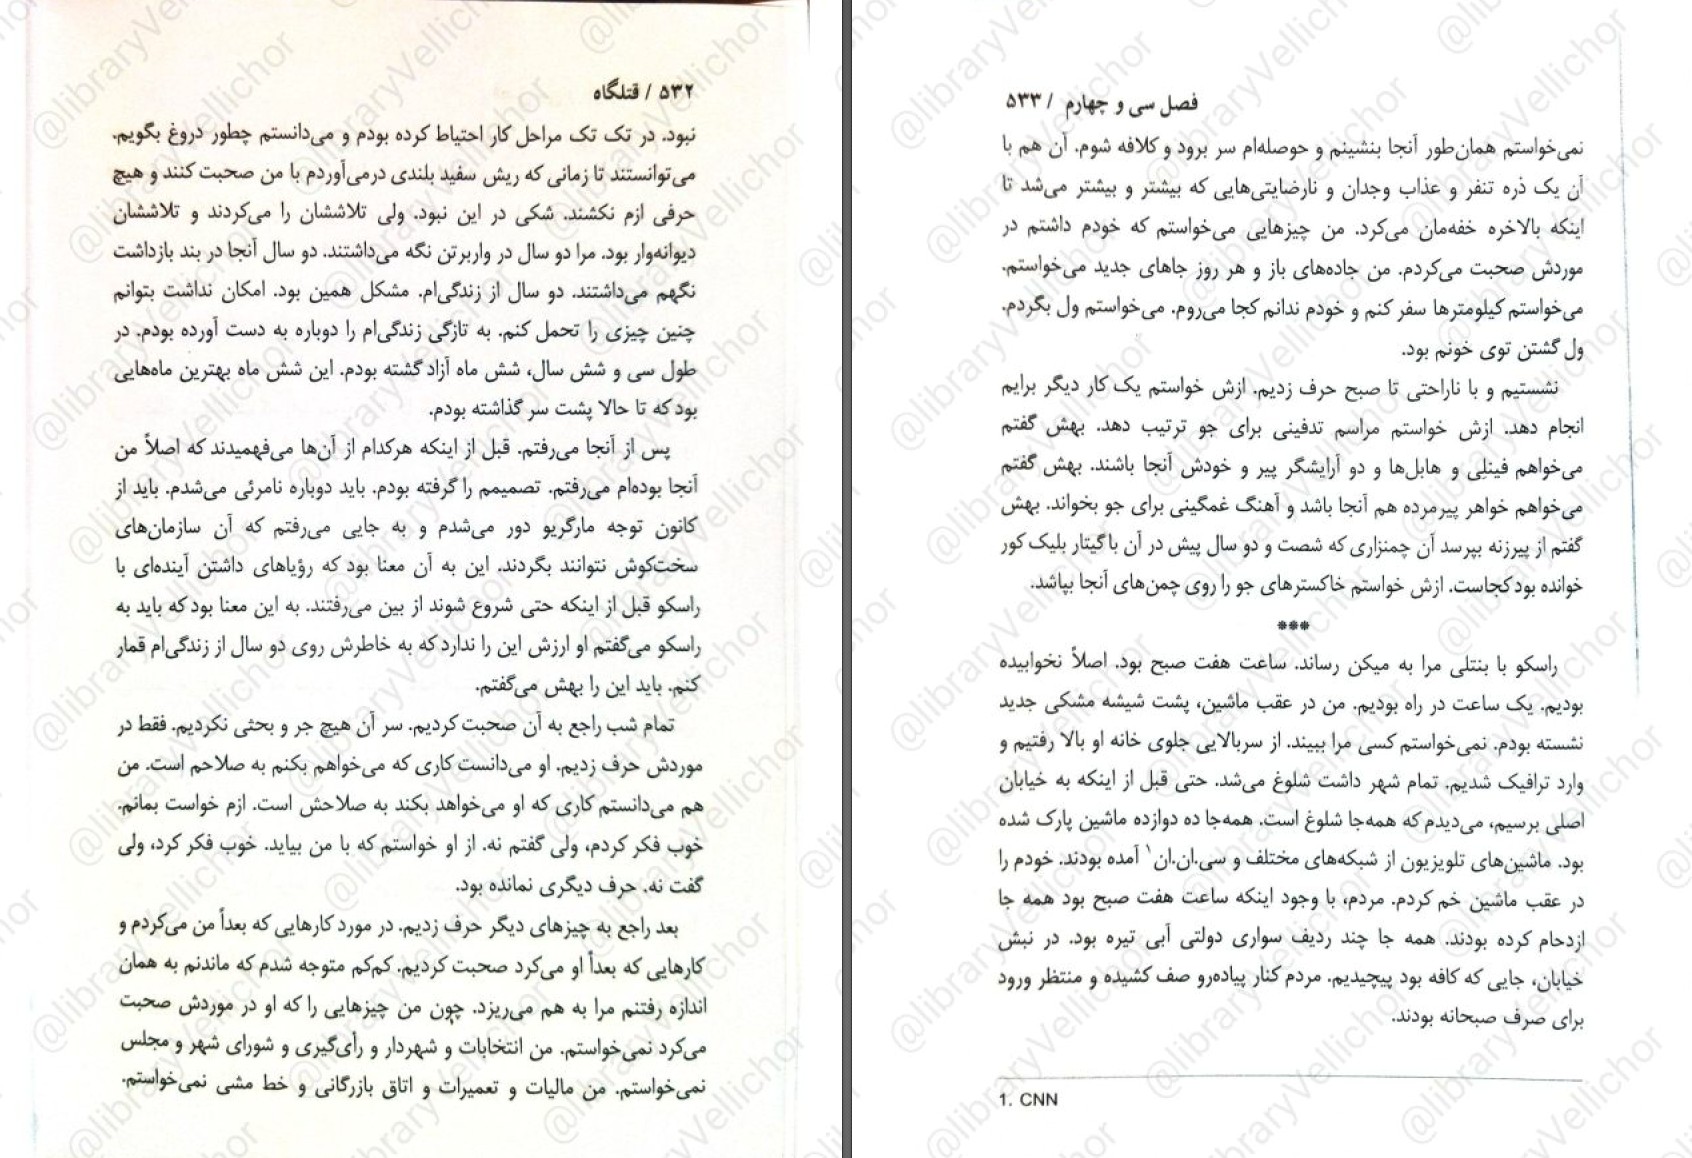 ۵۳۲ / قتلگاه
نبود. در تک تک مراحل کار احتیاط کرده بودم و می‌دانستم چطور دروغ بگویم.
می‌توانستند تا زمانی که ریش سفید بلندی درمی‌آوردم با من صحبت کنند و هیچ
حرفی ازم نکشند. شکی در این نبود. ولی تلاششان را می‌کردند و تلاششان
دیوانه‌وار بود. مرا دو سال در واربرتن نگه می‌داشتند. دو سال آنجا در بند بازداشت
نگهم می‌داشتند. دو سال از زندگی‌ام. مشکل همین بود. امکان نداشت بتوانم
چنین چیزی را تحمل کنم. به تازگی زندگی‌ام را دوباره به دست آورده بودم. در
طول سی و شش سال، شش ماه آزاد گشته بودم. این شش ماه بهترین ماه‌هایی
بود که تا حالا پشت سر گذاشته بودم.
پس از آنجا می‌رفتم. قبل از اینکه هرکدام از آن‌ها می‌فهمیدند که اصلاً من
آنجا بوده‌ام می‌رفتم. تصمیمم را گرفته بودم. باید دوباره نامرئی می‌شدم. باید از
کانون توجه مارگریو دور می‌شدم و به جایی می‌رفتم که آن سازمان‌های
سخت‌کوش نتوانند بگردند. این به آن معنا بود که رؤیاهای داشتن آینده‌ای با
راسکو قبل از اینکه حتی شروع شوند از بین می‌رفتند. به این معنا بود که باید به
راسکو می‌گفتم او ارزش این را ندارد که به خاطرش روی دو سال از زندگی‌ام قمار
کنم. باید این را بهش می‌گفتم.
تمام شب راجع به آن صحبت کردیم. سر آن هیچ جر و بحثی نکردیم. فقط در
موردش حرف زدیم. او می‌دانست کاری که می‌خواهم بکنم به صلاحم است. من
هم می‌دانستم کاری که او می‌خواهد بکند به صلاحش است. ازم خواست بمانم.
خوب فکر کردم، ولی گفتم نه. از او خواستم که با من بیاید. خوب فکر کرد، ولی
گفت نه. حرف دیگری نمانده بود.
بعد راجع به چیزهای دیگر حرف زدیم. در مورد کارهایی که بعداً من می‌کردم و
کارهایی که بعداً او می‌کرد صحبت کردیم. کم‌کم متوجه شدم که ماندنم به همان
اندازه رفتنم مرا به هم می‌ریزد. چون من چیزهایی را که او در موردش صحبت
می‌کرد نمی‌خواستم. من انتخابات و شهردار و رأی‌گیری و شورای شهر و مجلس
نمی‌خواستم. من مالیات و تعمیرات و اتاق بازرگانی و خط مشی نمی‌خواستم.
فصل سی و چهارم / ۵۳۳
نمی‌خواستم همان‌طور آنجا بنشینم و حوصله‌ام سر برود و کلافه شوم. آن هم با
آن یک ذره تنفر و عذاب وجدان و نارضایتی‌هایی که بیشتر و بیشتر می‌شد تا
اینکه بالاخره خفه‌مان می‌کرد. من چیزهایی می‌خواستم که خودم داشتم در
موردش صحبت می‌کردم. من جاده‌های باز و هر روز جاهای جدید می‌خواستم.
می‌خواستم کیلومترها سفر کنم و خودم ندانم کجا می‌روم. می‌خواستم ول بگردم.
ول گشتن توی خونم بود.
نشستیم و با ناراحتی تا صبح حرف زدیم. ازش خواستم یک کار دیگر برایم
انجام دهد. ازش خواستم مراسم تدفینی برای جو ترتیب دهد. بهش گفتم
می‌خواهم فینلِی و هابل‌ها و دو آرایشگر پیر و خودش آنجا باشند. بهش گفتم
می‌خواهم خواهر پیرمرده هم آنجا باشد و آهنگ غمگینی برای جو بخواند. بهش
گفتم از پیرزنه بپرسد آن چمنزاری که شصت و دو سال پیش در آن با گیتار بلیک کور
خوانده بود کجاست. ازش خواستم خاکسترهای جو را روی چمن‌های آنجا بپاشد.
***
راسکو با بنتلی مرا به میکن رساند. ساعت هفت صبح بود. اصلاً نخوابیده
بودیم. یک ساعت در راه بودیم. من در عقب ماشین، پشت شیشه مشکی جدید
نشسته بودم. نمی‌خواستم کسی مرا ببیند. از سربالایی جلوی خانه او بالا رفتیم و
وارد ترافیک شدیم. تمام شهر داشت شلوغ می‌شد. حتی قبل از اینکه به خیابان
اصلی برسیم، می‌دیدم که همه‌جا شلوغ است. همه‌جا ده دوازده ماشین پارک شده
بود. ماشین‌های تلویزیون از شبکه‌های مختلف و سی.ان.ان۱ آمده بودند. خودم را
در عقب ماشین خم کردم. مردم، با وجود اینکه ساعت هفت صبح بود همه جا
ازدحام کرده بودند. همه جا چند ردیف سواری دولتی آبی تیره بود. در نبش
خیابان، جایی که کافه بود پیچیدیم. مردم کنار پیاده‌رو صف کشیده و منتظر ورود
برای صرف صبحانه بودند.
1. CNN
@libraryVellichor